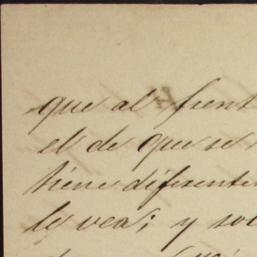 que al frent
el de que se
tiene diferente
lo vea; y so